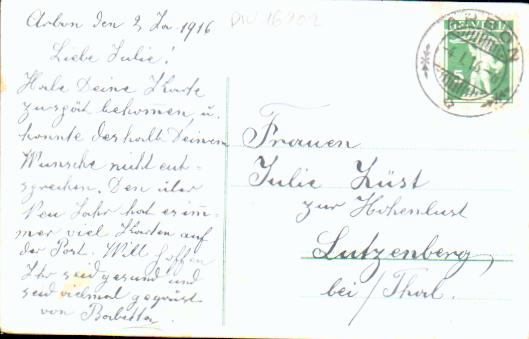 Arbon den 2 Ja. 1916
Liebe Julie!
Habe Deine Karte
zuspät bekommen, u.
konnte deshalb Deinem
Wunsche nicht ent-
sprechen. Den über
Neu Jahr hat es im-
mer viel Karten auf
der Post. Will hoffen
Ihr seid gesund und
seid vielmal gegrüsst
von Babetta.
ARBON
HELVETIA
5
Frauen
Julie Züst
zur Hohenlust
Lutzenberg,
bei / Thal.